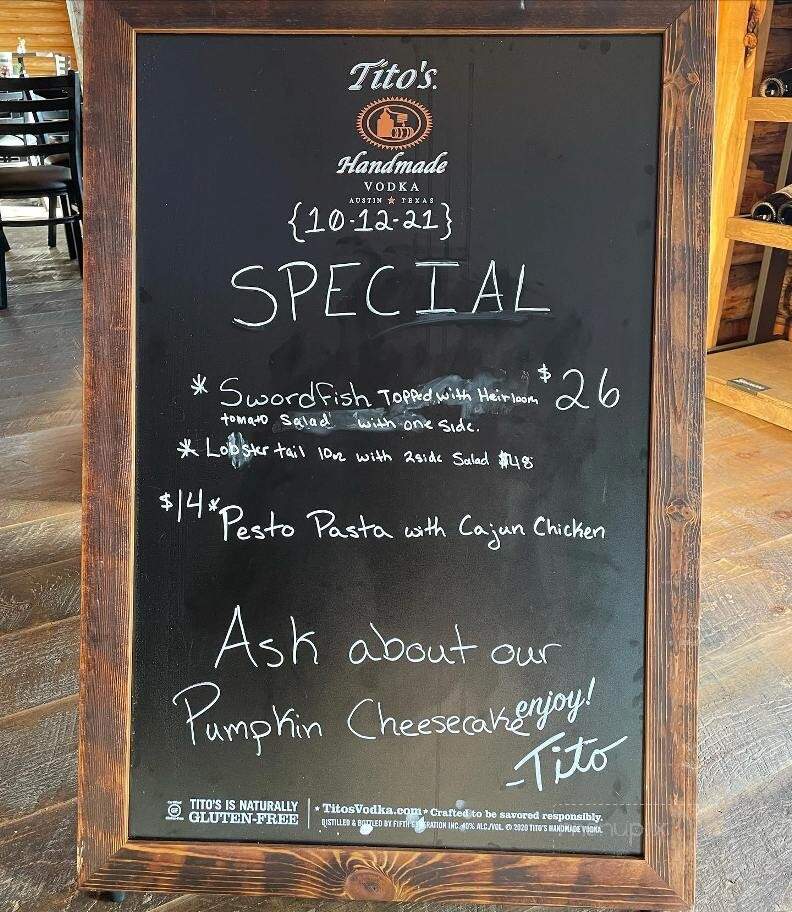 Tito's.
Handmade
VODKA
AUSTIN ★ TEXAS
{10-12-21}
SPECIAL
* Swordfish Topped with Heirloom $26
tomato Salad with one side.
* Lobster tail 10oz with 2side Salad $48
$14 * Pesto Pasta with Cajun Chicken
Ask about our
Pumpkin Cheesecake
enjoy!
-Tito
TITO'S IS NATURALLY
GLUTEN-FREE
* TitosVodka.com * Crafted to be savored responsibly.
DISTILLED & BOTTLED BY FIFTH GENERATION INC. 40% ALC./VOL. © 2020 TITO'S HANDMADE VODKA.